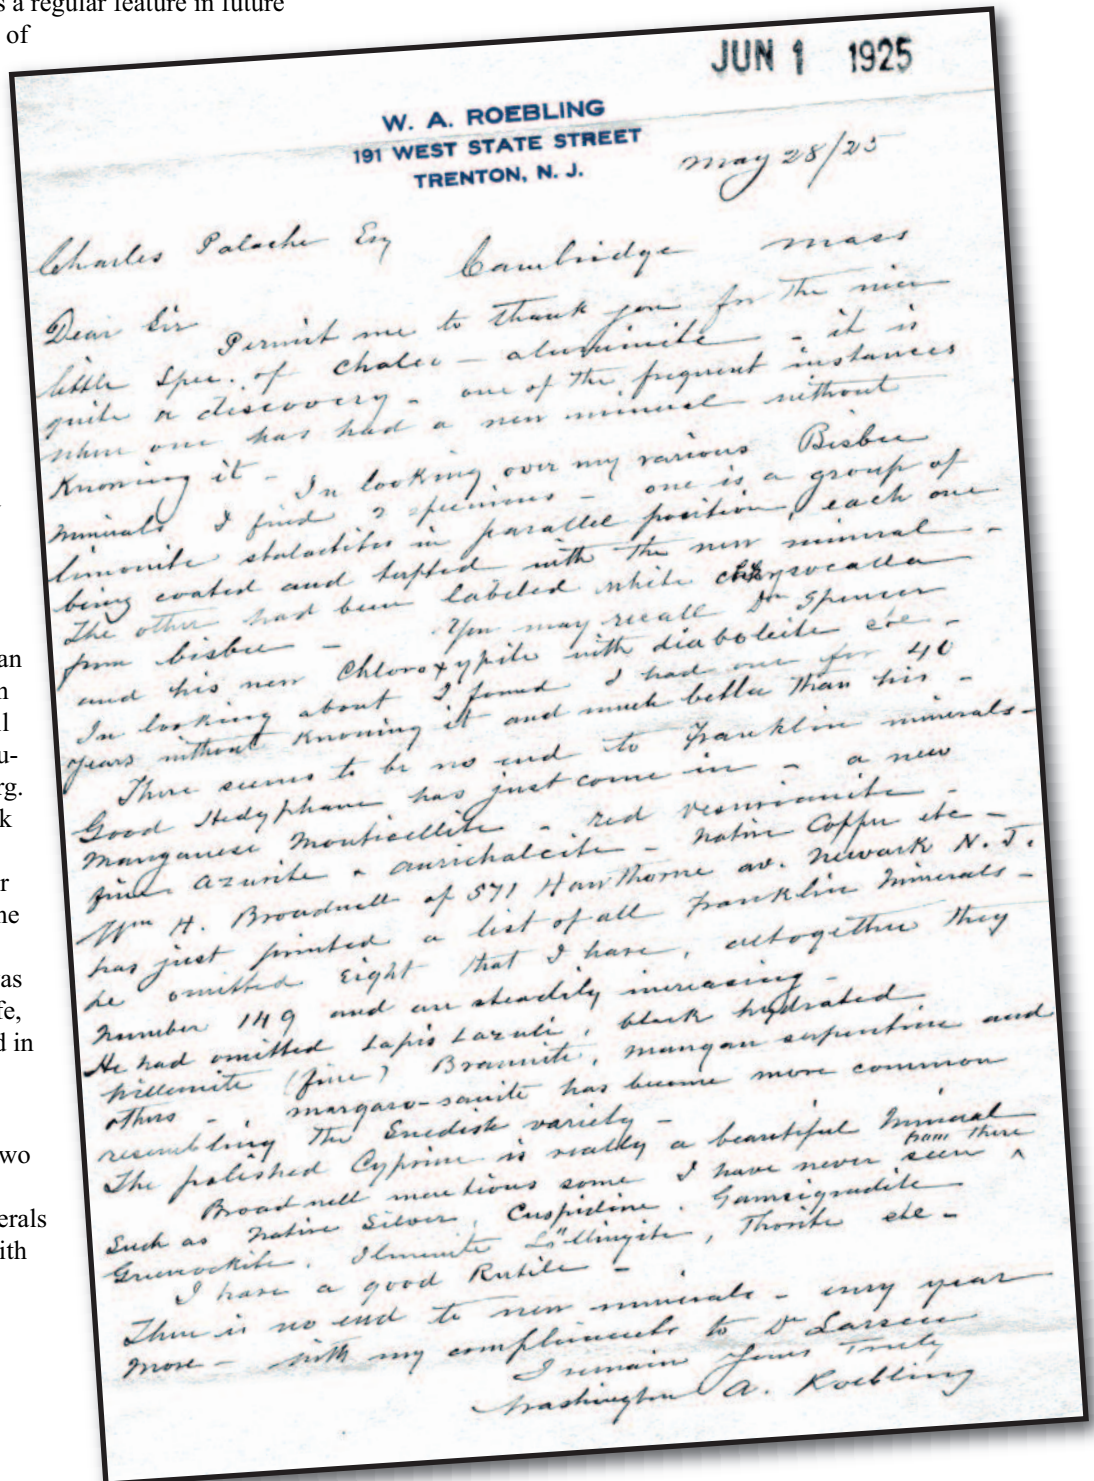 s a regular feature in future
of
JUN 1 1925
W. A. ROEBLING
191 WEST STATE STREET
TRENTON, N. J.
May 28/25
Charles Palache Esq
Cambridge Mass
Dear Sir
Permit me to thank you for the nice
little spec. of chalco-alumite - it is
quite a discovery - one of the frequent instances
when one has had a new mineral without
Knowing it - In looking over my various Bisbee
minerals I find 2 specimens - one is a group of
limonite stalactites in parallel position, each one
being coated and tufted with the new mineral -
The other had been labeled white chrysocolla
from bisbee - You may recall Dr Spencer
and his new Chloroxyphite with diaboleite etc -
In looking about I found I had one for 40
years without Knowing it and much better than his -
There seems to be no end to Franklin minerals -
Good Hedyphane has just come in - a new
Manganese Monticellite - red vesuvianite -
fine azurite & aurichalcite - Native Copper etc -
Wm H. Broadwell of 571 Hawthorne av. Newark N. J.
has just printed a list of all Franklin Minerals -
he omitted Eight that I have, altogether they
number 149 and are steadily increasing -
He had omitted Lapis Lazuli, black hydrated
willemite (fine) Braunite, mangan serpentine and
others - margaro-sanite has become more common
resembling the Swedish variety -
The polished Cyprine is really a beautiful Mineral
Broadwell mentions some I have never seen ^ from there
Such as Native Silver, Cuspidine, Gamsigradite
Greenockite, Ilmenite Löllingite, Thorite etc -
I have a good Rutile -
There is no end to new minerals - every year
more - with my compliments to Dr Larsen
I remain Yours Truly
Washington A. Roebling
an
n
ll
u-
rg.
k
r
ne
as
fe,
d in
wo
erals
ith